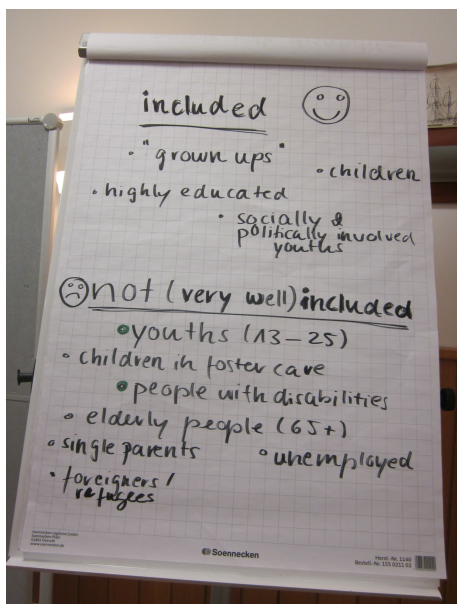 included
• "grown ups"
• children
• highly educated
• socially &
politically involved
youths
not (very well) included
• youths (13-25)
• children in foster care
• people with disabilities
• elderly people (65+)
• single parents
• unemployed
• foreigners/
refugees
Soennecken
www.soennecken.de
Herst.-Nr. 1140
Bestell-Nr. 155 0211 03